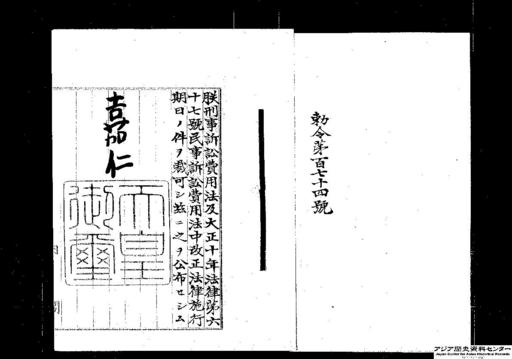 勅令第百七十四號
朕刑事訴訟費用法及大正十年法律第六
十七號民事訴訟費用法中改正法律施行
期日ノ件ヲ裁可シ茲ニ之ヲ公布セシム
嘉仁
天皇
御璽
アジア歴史資料センター
Japan Center for Asian Historical Records